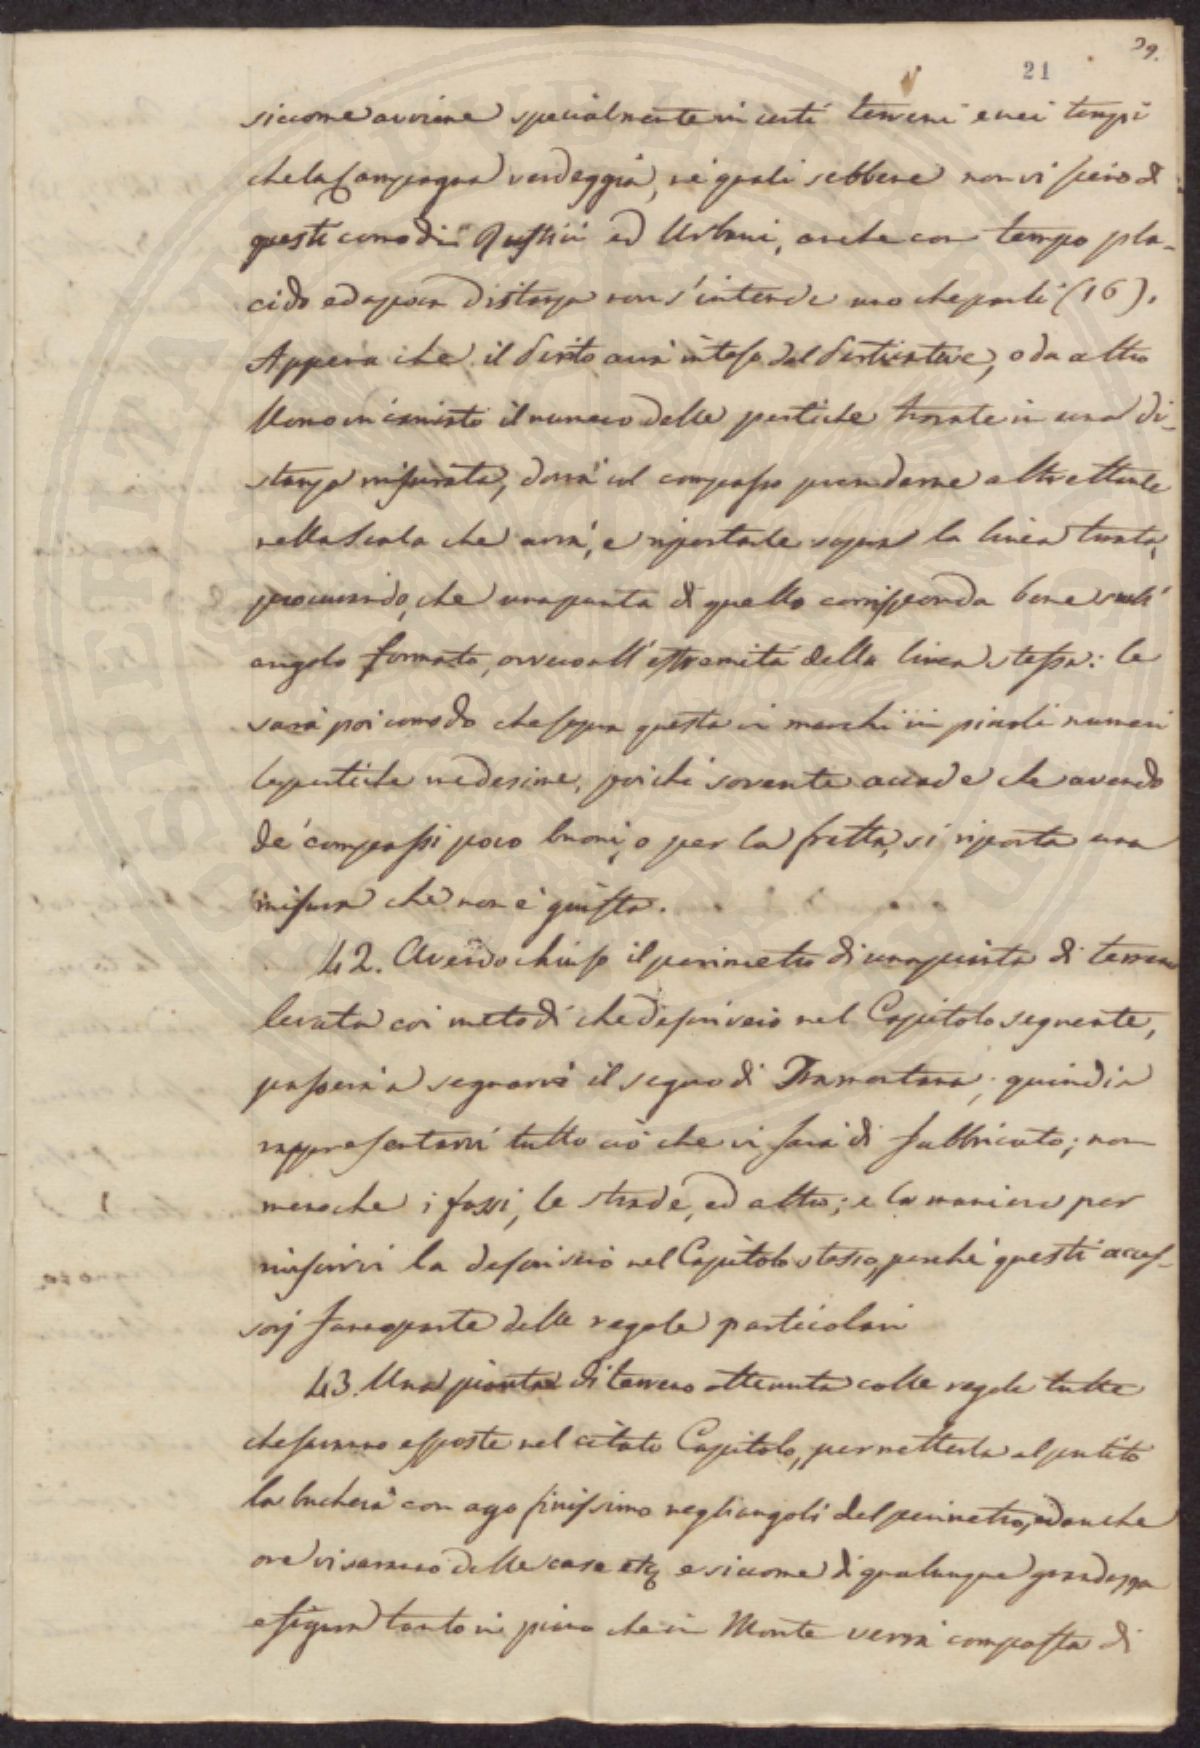 39.
21
siccome avviene specialmente in certi terreni e nei tempi
che la Campagna verdeggia, ne quali sebbene non vi siero di
questi comodi Rustici ed Urbani, anche con tempo pla-
cido ed a poca distanza non s'intende uno che parli (16).
Appena che il Perito avrà inteso dal Partitante, o da altro
Uomo in canneto il numero delle pertiche trovate in una di-
stanza misurata, dovrà col compasso prenderne altrettante
nella Scala che avrà, e riportarle sopra la linea tirata,
procurando, che una punta di quello corrisponda bene sull'
angolo formato, ovvero all'estremità della linea stessa: le
sarà poi comodo che sopra questa vi marchi in piccoli numeri
le pertiche medesime, poichè sovente accade che avendo
de' compassi poco buoni, o per la fretta, si riporta una
misura che non è giusta.
42. Avendo chiuso il perimetro di una pianta di terreno
levata coi metodi che descriverò nel Capitolo seguente,
passerà a segnarvi il segno di Tramontana; quindi a
rappresentarvi tutto ciò che vi sarà di fabbricato; non
meno che i fossi, le strade, ed altro; e la maniera per
misurarvi la descriverò nel Capitolo stesso, perchè questi acces-
sorj fanno parte delle regole particolari
43. Una pianta di terreno ottenuta colle regole tutte
che saranno esposte nel citato Capitolo, per metterla al pulito
la bucherà con ago finissimo negli angoli del perimetro, ed anche
ove vi saranno delle case etc e siccome di qualunque grandezza
e figura tanto in piano che in Monte verrà composta di